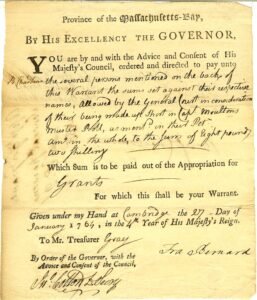 Province of the Massachusetts-Bay,
By His Excellency the GOVERNOR,
YOU are by and with the Advice and Consent of His
Majesty's Council, ordered and directed to pay unto
the several persons mentioned on the back of
this Warrant the sum set against their respective
names, allowed by the General Court in consideration
of their being made up short in Cap. Moultons
Muster Roll, as mend in their Pet
Amt. in the whole, to the sum of Eight pounds
two shilling
Which Sum is to be paid out of the Appropriation for
Grants
For which this shall be your Warrant.
Given under my Hand at Cambridge the 27 Day of
January 1764, in the 4th Year of His Majesty's Reign.
To Mr. Treasurer Gray
By Order of the Governor, with the
Advice and Consent of the Council,
Fra Bernard
Jn. Cotton D. Secry